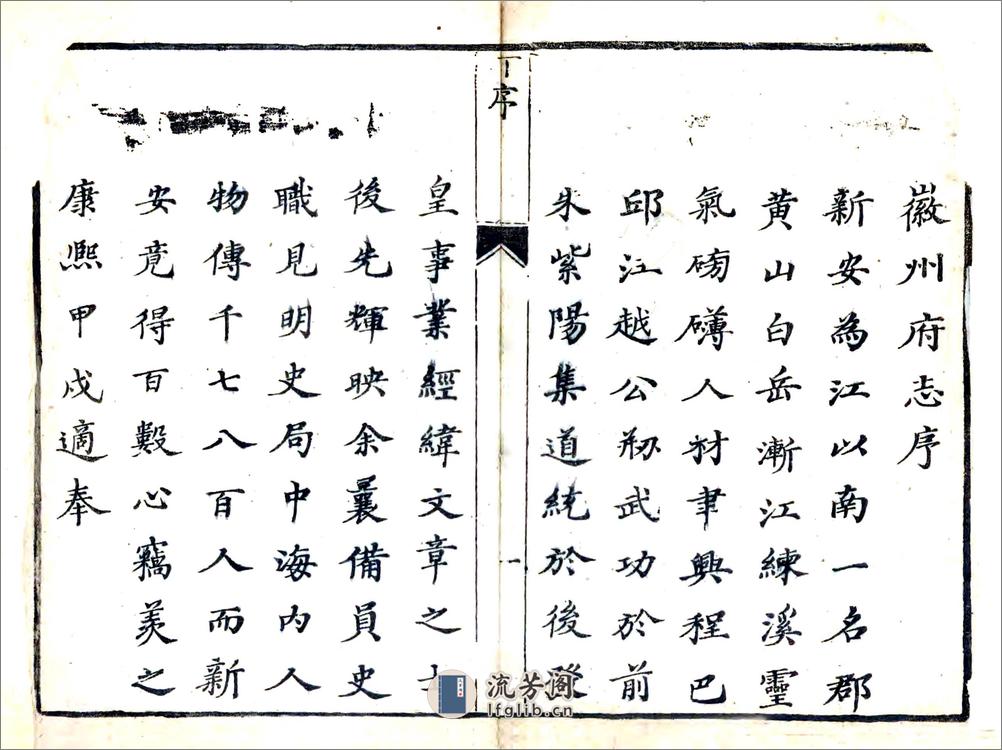 徽州府志序
新安為江以南一名郡
黄山白岳漸江練溪靈
氣磅礴人材聿興程巴
邱江越公剏武功於前
朱紫陽集道統於後
序
一
皇事業經緯文章之士
後先輝映余曩備員史
職見明史局中海内人
物傳千七八百人而新
安竟得百數心竊羨之
康熙甲戍適奉
流芳阁
lfglib.cn